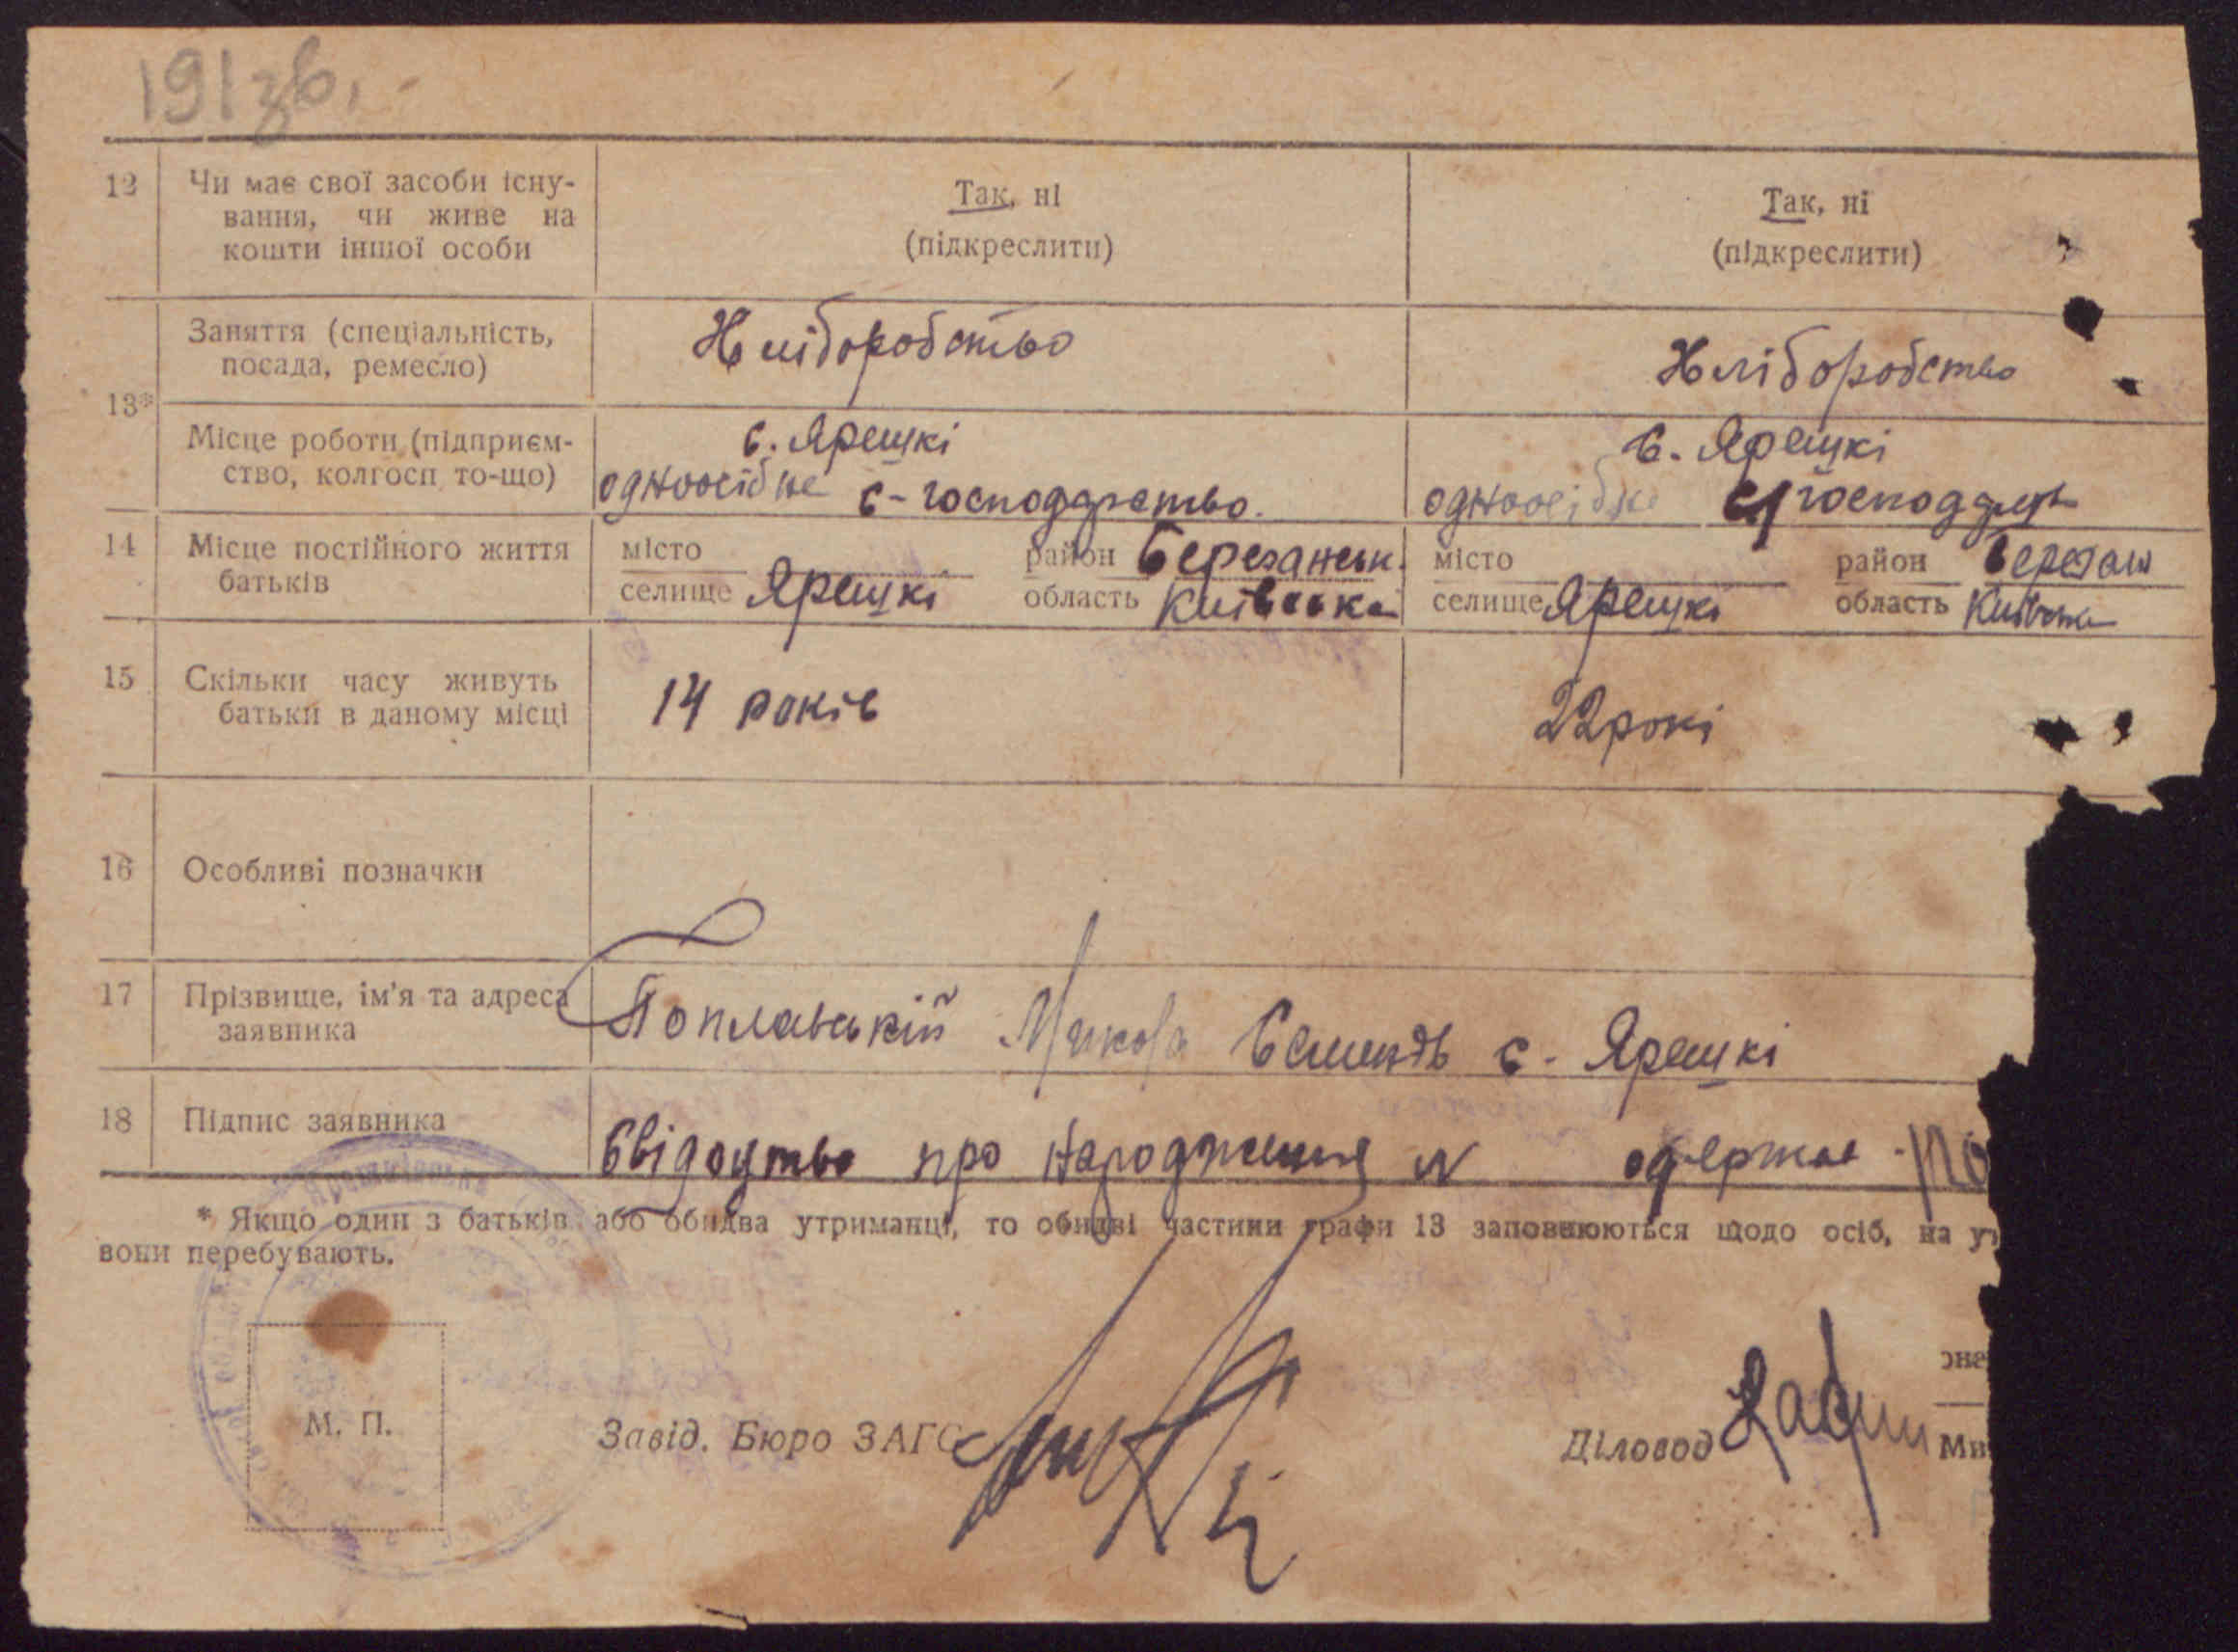 191зв.
12 Чи має свої засоби існу- Так, ні Так, ні
вання, чи живе на (підкреслити) (підкреслити)
кошти іншої особи
13* Заняття (спеціальність, Хліборобство Хліборобство
посада, ремесло)
Місце роботи (підприєм- с. Ярешкі с. Ярешкі
ство, колгосп то-що) одноосібне с-господарство. одноосібне
14 Місце постійного життя місто район Березанськ. місто район Березан
батьків селище Ярешкі область Київська селище Ярешкі область Київська
15 Скільки часу живуть 14 років 22 рокі
батьки в даному місці
16 Особливі позначки
17 Прізвище, ім'я та адреса Поплавський Микола с. Ярешкі
заявника
18 Підпис заявника Свідоцтво про народження N одержав
* Якщо один з батьків або обидва утриманці, то обидві частини графи 13 заповнюються щодо осіб, на
вони перебувають.
М. П.
Завід. Бюро ЗАГС Діловод